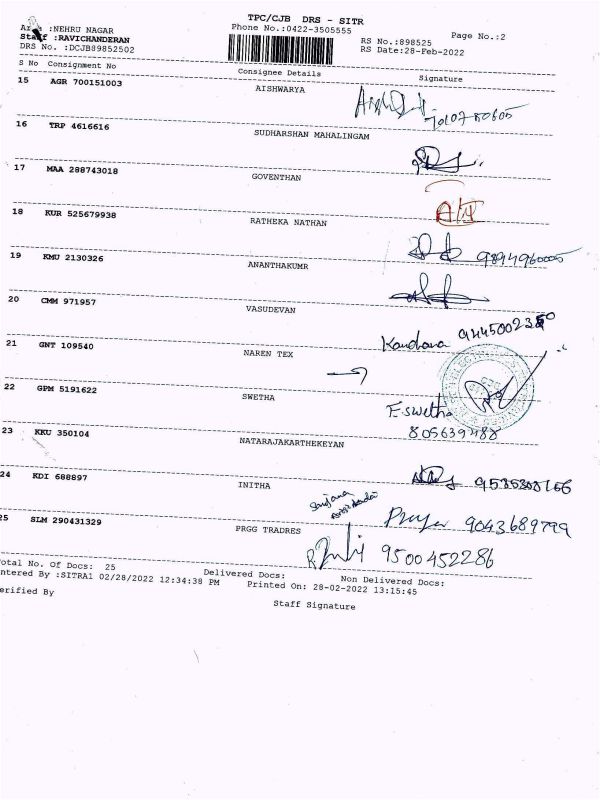 TPC/CJB DRS - SITR
:NEHRU NAGAR
Phone No.:0422-3505555
Page No.:2
Staff :RAVICHANDERAN
RS No.:898525
DRS No. :DCJB89852502
RS Date:28-Feb-2022
S No Consignment No Consignee Details Signature
15 AGR 700151003 AISHWARYA
16 TRP 4616616 SUDHARSHAN MAHALINGAM
17 MAA 288743018 GOVENTHAN
18 KUR 525679938 RATHEKA NATHAN
19 KMU 2130326 ANANTHAKUMR
20 CMM 971957 VASUDEVAN
21 GNT 109540 NAREN TEX
22 GPM 5191622 SWETHA
F. swetha
23 KKU 350104 NATARAJAKARTHEKEYAN
24 KDI 688897 INITHA
25 SLM 290431329 PRGG TRADRES
Priya 9043689799
9500452286
Total No. Of Docs: 25 Delivered Docs: Non Delivered Docs:
Entered By :SITRA1 02/28/2022 12:34:38 PM Printed On: 28-02-2022 13:15:45
Verified By
Staff Signature